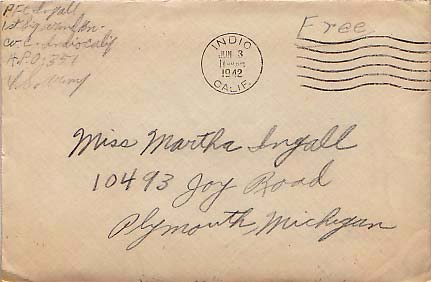 Pfc Ingall
Co. C. Indio Calif
A.P.O. 351
U.S. Army
Free
INDIO
JUN 3
1942
CALIF.
Miss Martha Ingall
10493 Joy Road
Plymouth, Michigan